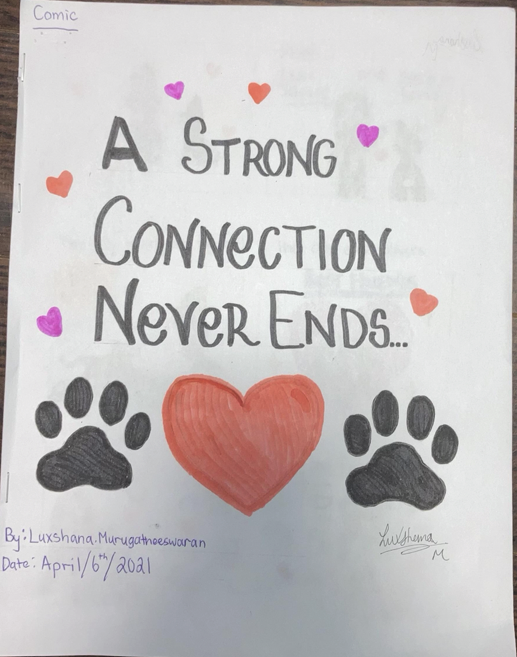 Comic
A STRONG
CONNeCTION
NeVeR ENDS...
By: Luxshana.Murugathneeswaran
Date: April/6th/2021
Luxshana
M